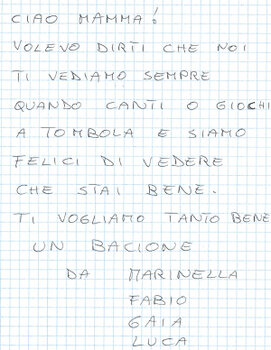 CIAO MAMMA!
VOLEVO DIRTI CHE NOI
TI VEDIAMO SEMPRE
QUANDO CANTI O GIOCHI
A TOMBOLA E SIAMO
FELICI DI VEDERE
CHE STAI BENE.
TI VOGLIAMO TANTO BENE
UN BACIONE
DA MARINELLA
FABIO
GAIA
LUCA